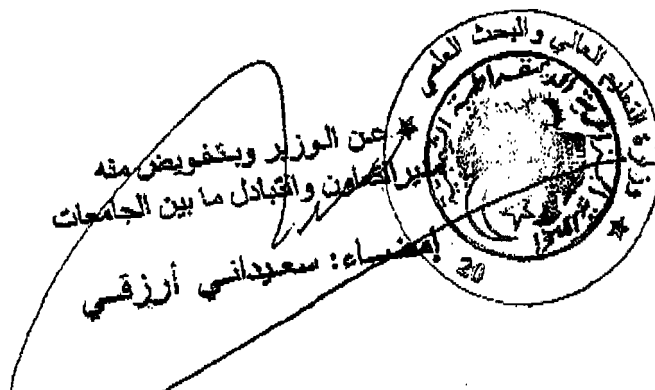 وزارة التعليم العالي والبحث العلمي
الجمهورية الجزائرية الديمقراطية الشعبية
20
عن الوزير وبتفويض منه
مدير التعاون والتبادل ما بين الجامعات
إمضاء: سعيداني أرزقي